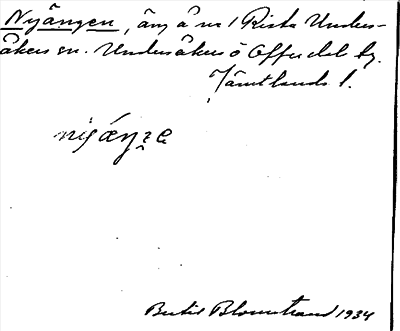 Nyängen, äng å nr 1 Rista Unders-
åkers sn. Undersåkers o Offerdals tg.
Jämtlands l.
Bertil Blomstrand 1934